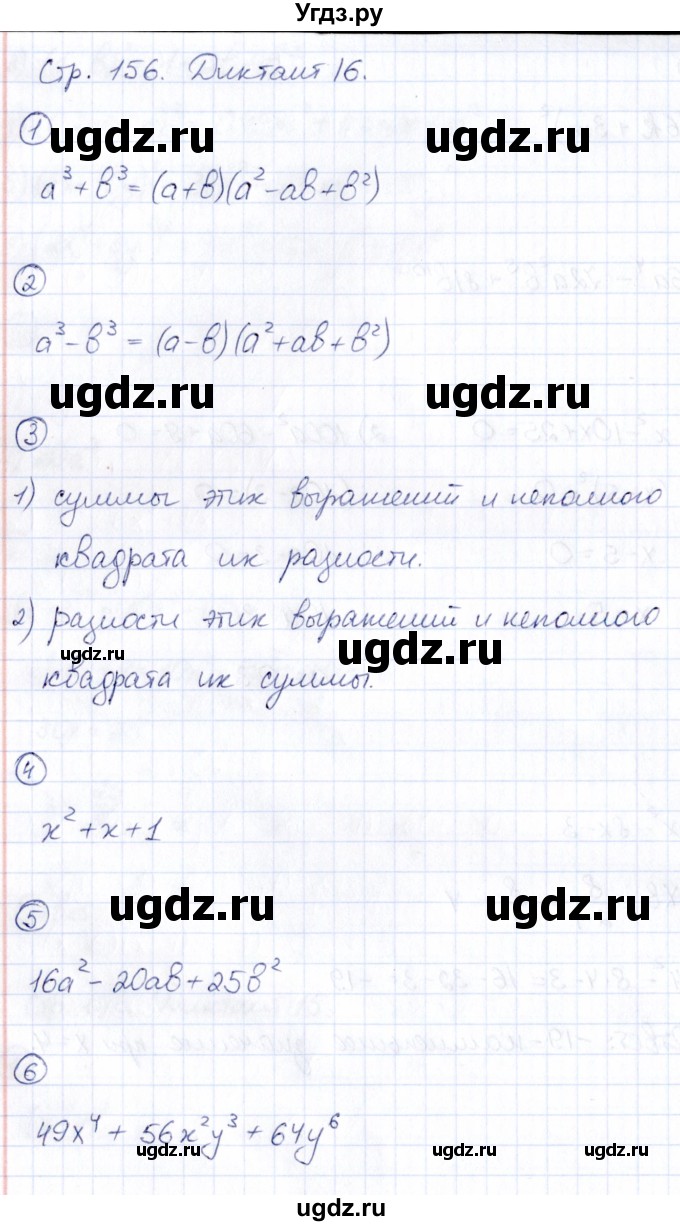 Угдз.ру
Стр. 156. Диктант 16.
1
ugdz.ru ugdz.ru
a³+b³=(a+b)(a²-ab+b²)
2
a³-b³=(a-b)(a²+ab+b²)
ugdz.ru ugdz.ru
3
1) суммы этих выражений и неполного
квадрата их разности.
2) разности этих выражений и неполного
ugdz.ru ugdz.ru
квадрата их суммы.
4
x²+x+1
5
ugdz.ru ugdz.ru
16a²-20ab+25b²
6
49x⁴+56x²y³+64y⁶
ugdz.ru ugdz.ru ugdz.ru
ugdz.ru